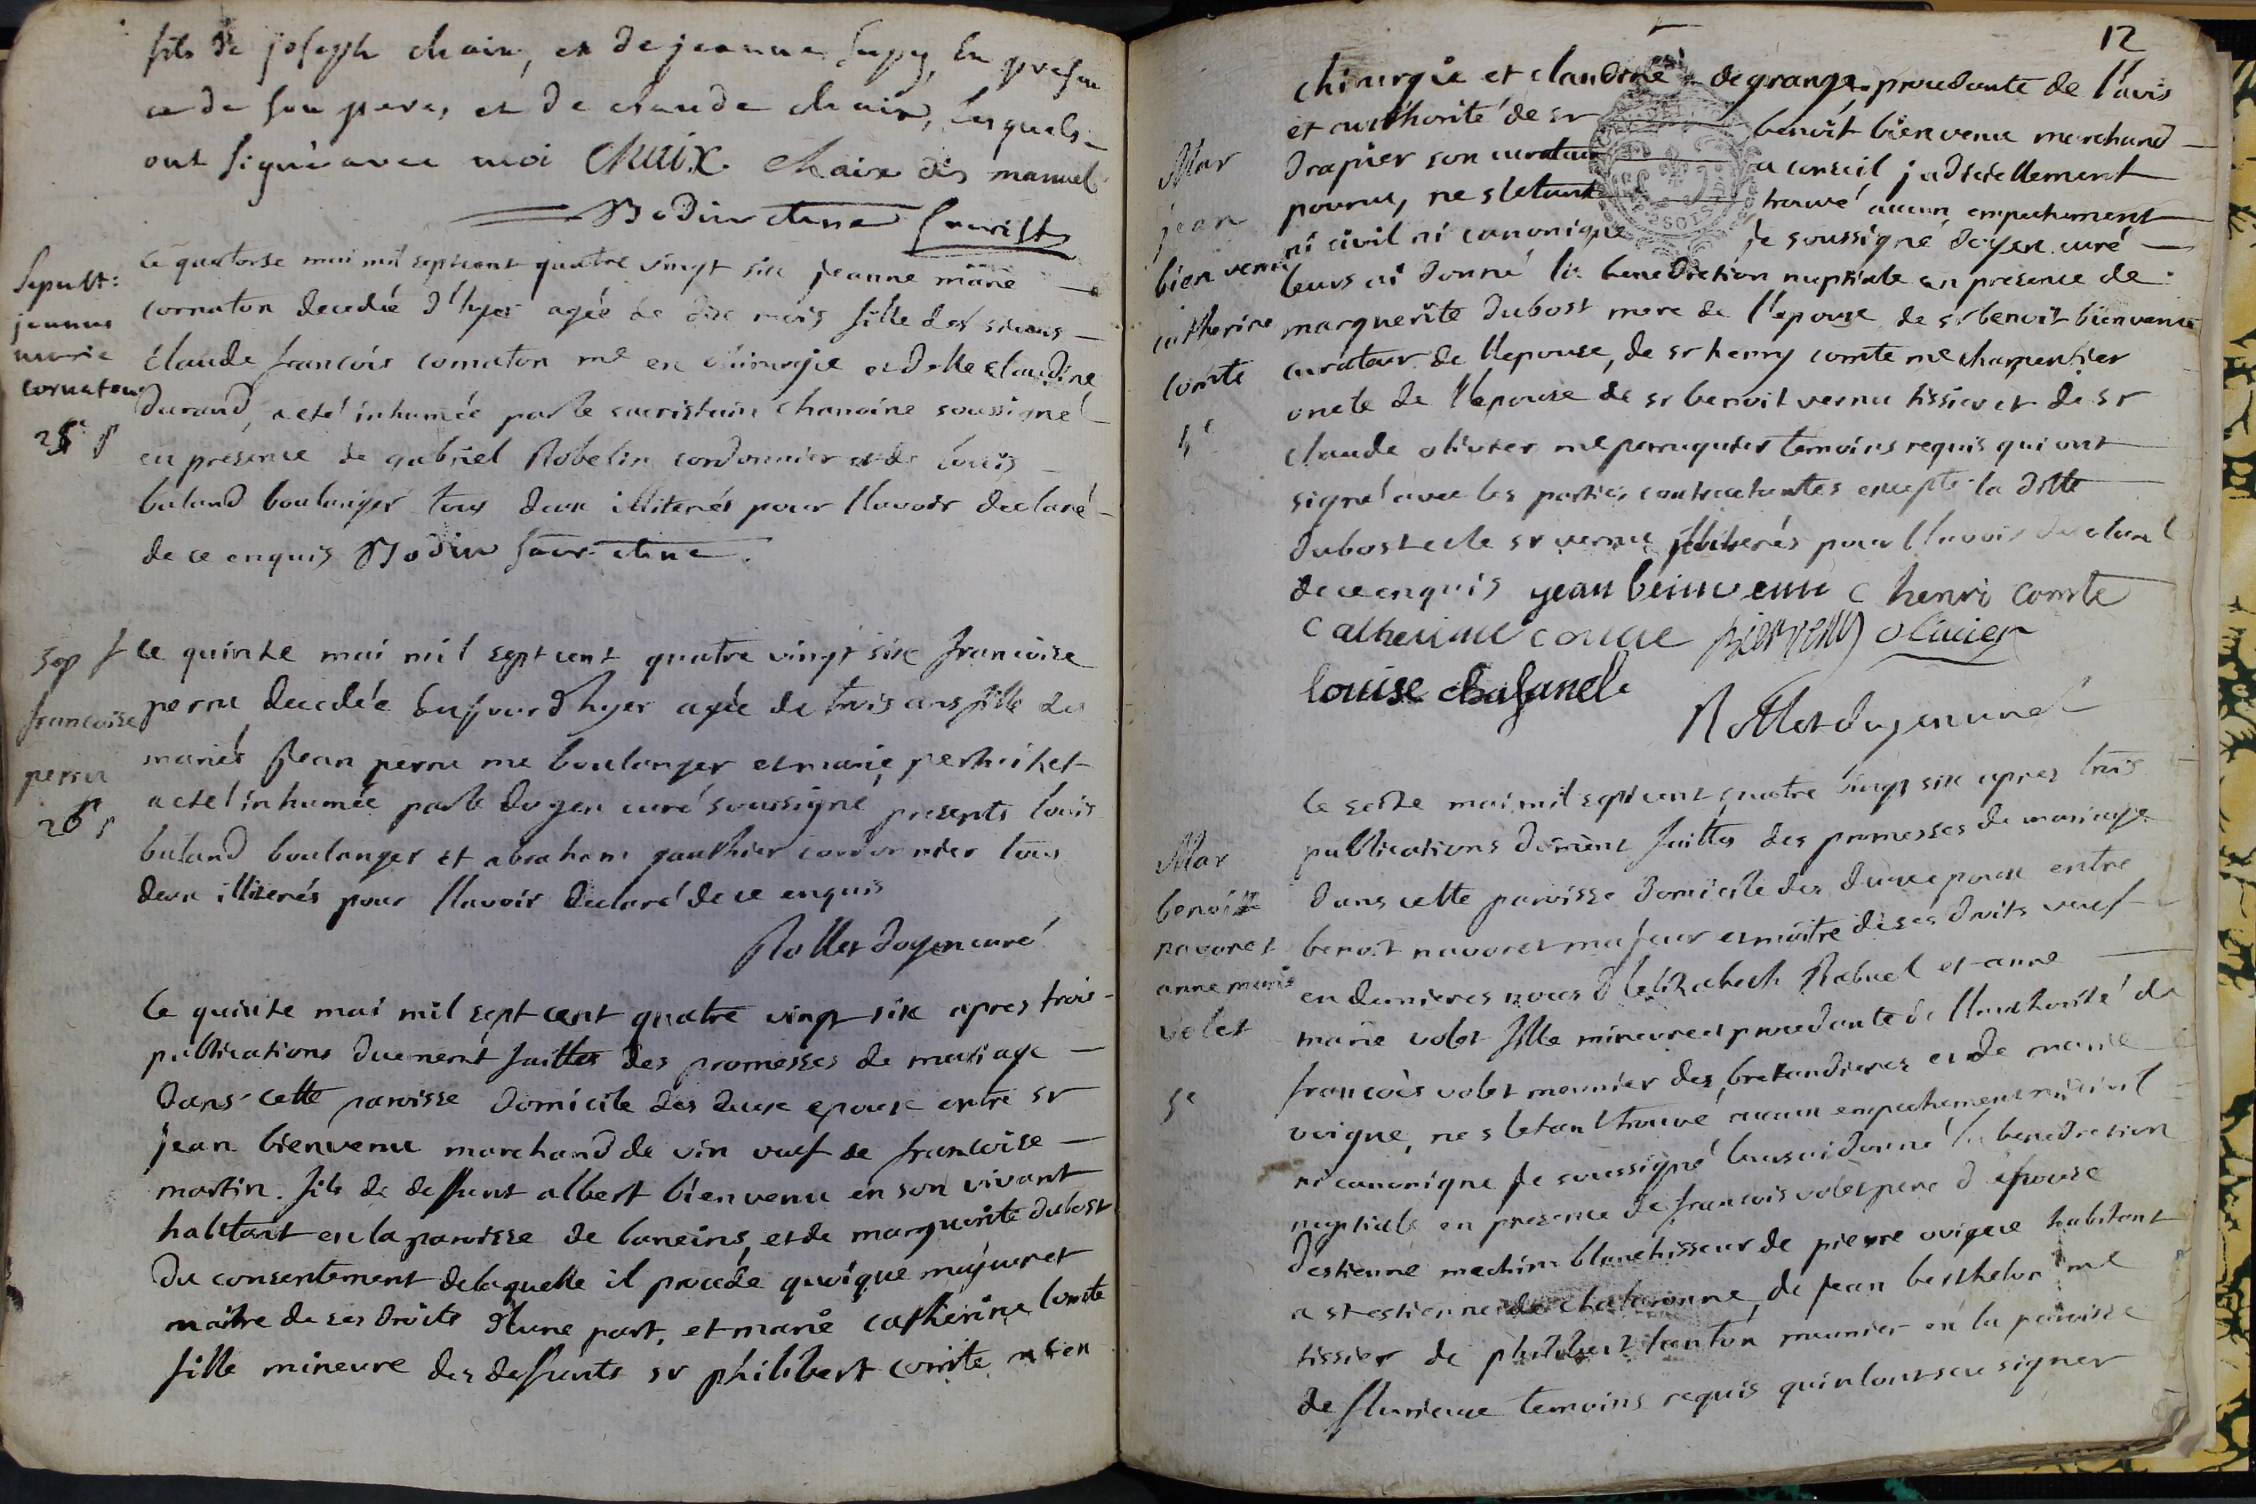 fils de joseph chaix, et de jeanne supy, en presen
ce de son pere, et de claude chaix, lesquels
ont signé avec moi CHAIX. Chaix dis manuel
Bodin chne sacrist
Sepult:
jeanne
marie
cornaton
25e s
ce quatorse mai mil sept cent quatre vingt six jeanne marie
cornaton decedée d'hyer agée de dix mois fille des sieurs
claude francois cornaton me en chirurgie et dlle claudine
durand, a eté inhumée par le sacristain chanoine soussigné
en présence de gabriel Robelin cordonnier et de louis
buland boulanger tous deux illiterés pour l'avoir declaré
de ce enquis Bodin sacr. chne
Sep
francoise
perru
26e s
le quinze mai mil sept cent quatre vingt six francoise
perru decedée aujourd'hyer agée de trois ans fille des
mariés jean perru me boulanger et marie
a eté inhumée par le doyen curé soussigné presents louis
buland boulanger et abraham gauthier cordonnier tous
deux illiterés pour l'avoir declaré de ce enquis
Rollet doyen curé
le quinze mai mil sept cent quatre vingt six apres trois
publications duement faittes des promesses de mariage
dans cette paroisse domicile des deux epoux entre sr
jean bienvenu marchand de vin veuf de francoise
martin. fils de deffunt albert bienvenu en son vivant
habitant en la paroisse de baneins, et de marguerite dubost
du consentement de laquelle il procede quoique majeur et
maitre de ses droits d'une part, et marie catherine comte
fille mineure des deffunts sr philibert comte me en
12
Mar
jean
bienvenu
catherine
comte
4e
chirurgie et claudine degrange procedante de l'avis
et authorité de sr benoit bienvenu marchand
drapier son curateur a conseil judiciellement
pourvu, ne s'etant trouvé aucun empechement
ni civil ni canonique je soussigné doyen curé
leurs ai donné la benediction nuptiale en presence de
marguerite dubost mere de l'epoux, de sr benoit bienvenu
curateur de l'epouse, de sr henry comte me charpentier
oncle de l'epouse de sr benoit vernu tissier et de sr
claude olivier me perruquier temoins requis qui ont
signé avec les parties contractantes excepté la ditte
dubost et le sr vernu illiterés pour l'avoir declaré
de ce enquis jean beinvenu C henri comte
Catherine comte bienvenu olivier
louise chasanel
Rollet doyen curé
Mar
benoit
navoret
anne marie
volet
5e
le seize mai mil sept cent quatre vingt six apres trois
publications dûment faittes des promesses de mariage
dans cette paroisse domicile des deux epoux entre
benoit navoret majeur et maitre de ses droits veuf
en dernieres noces d'elizabeth Rabuel et anne
marie volet fille mineure et procedante de l'authorité de
francois volet meunier des bretandieres et de marie
uvigne, ne s'etant trouvé aucun empechement ni civil
ni canonique je soussigné leurs ai donné la benediction
nuptiale en presence de francois volet pere d'epouse
d'estienne mechin blanchisseur de pierre uvigne habitant
a st estienne de chalaronne, de jean berthelon me
tissier de philibert tanton meunier en la paroisse
de flurieux temoins requis qui n'ont sçu signer